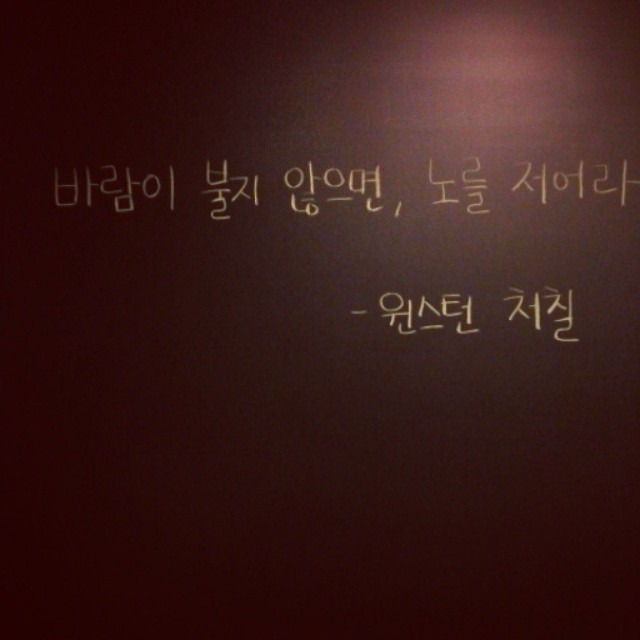 바람이 불지 않으면, 노를 저어라
- 윈스턴 처칠